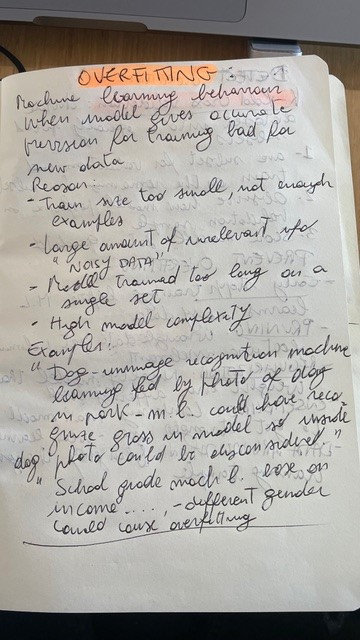 OVERFITTING:
Machine learning behaviour
when model gives accurate
prevision for training bad for
new data
Reason:
- Train size too small, not enough
examples
- Large amount of unrelevant info
"NOISY DATA"
- Model trained too long on a
single set
- High model complexity
Examples:
"Dog-immage recognition machine
learning fed by photo of dog
in park - m.l. could have reco
gnize grass in model so inside
dog photo could be disconsidered."
"School grade mach l. base on
income ....., - different gender
could cause overfitting